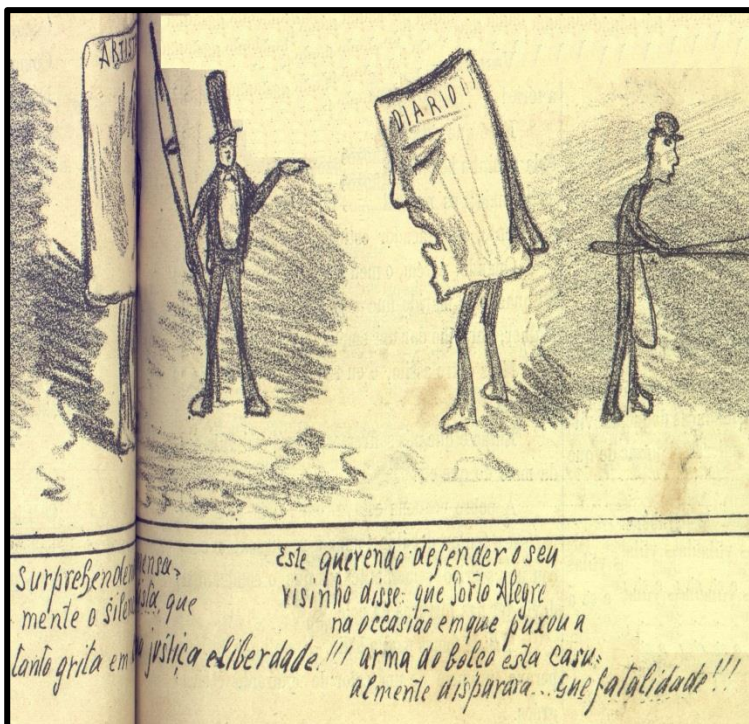 ARTIST
DIARIO
Surprehende
mente o que
tanto grita em justiça e liberdade!!!
Este querendo defender o seu
visinho disse: que Porto Alegre
na occasião em que puxou a
arma do bolco esta casu-
almente disparara... Que fatalidade!!!